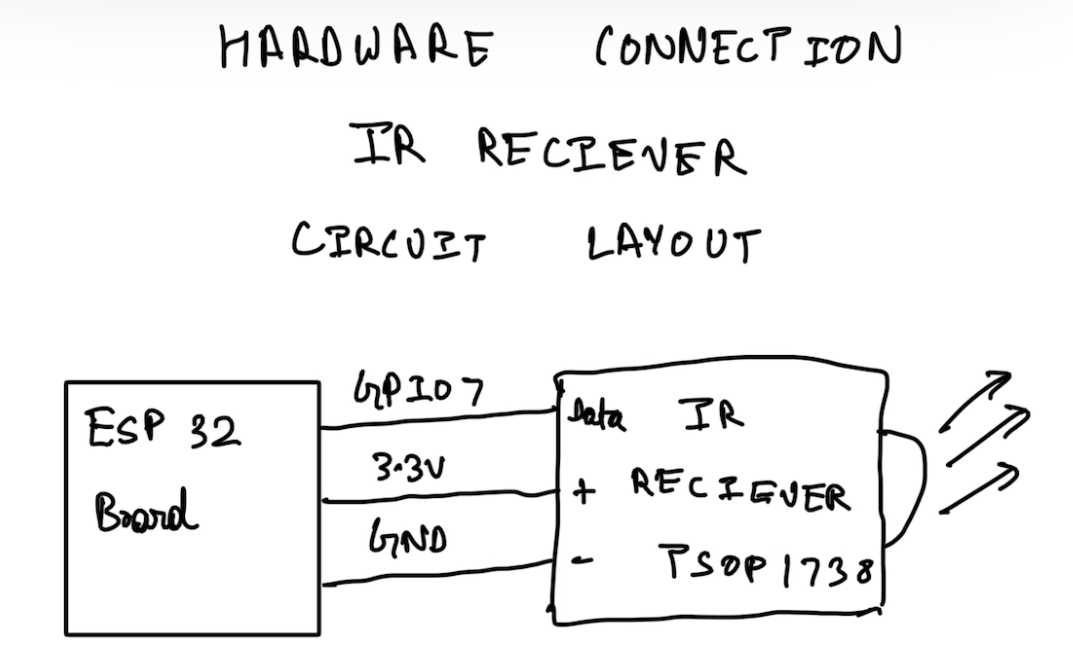 HARDWARE CONNECTION
IR RECIEVER
CIRCUIT LAYOUT
ESP 32
Board
GPIO 7
3.3V
GND
Data IR
+ RECIEVER
- TSOP 1738